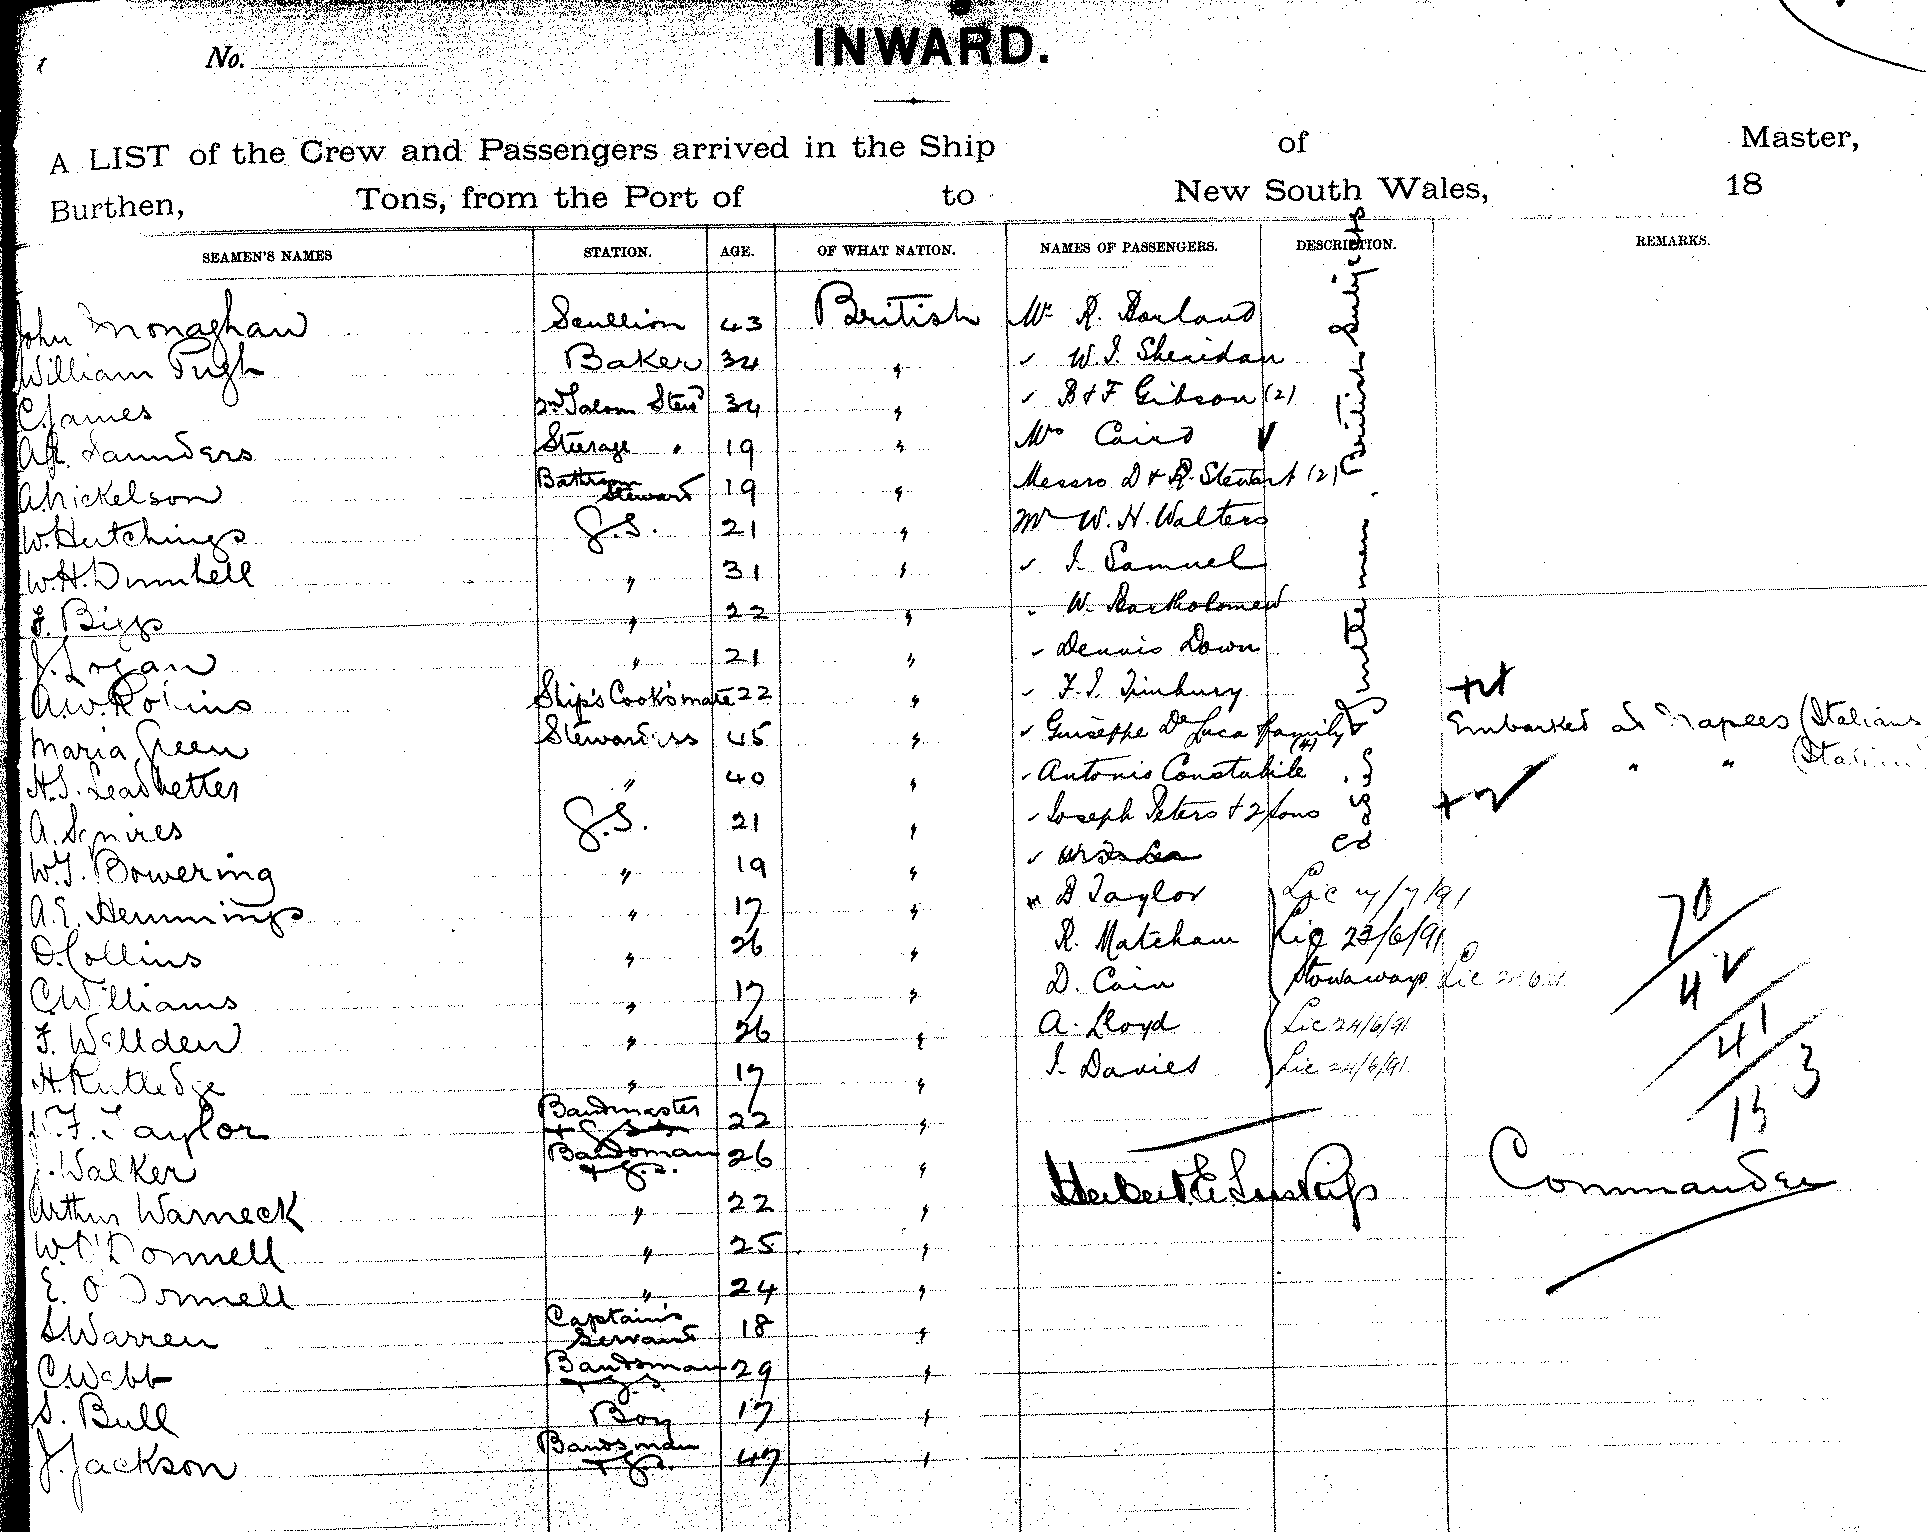 No.
INWARD.
A LIST of the Crew and Passengers arrived in the Ship of Master,
Burthen, Tons, from the Port of to New South Wales, 18
SEAMEN'S NAMES STATION. AGE. OF WHAT NATION. NAMES OF PASSENGERS. DESCRIPTION. REMARKS.
John Monaghan Scullion 43 British Mr R. Borland
William Pugh Baker 34 " " W. J. Sheridan
C. James 2nd Saloon Stewd 34 " " B & F Gibson (2)
Saunders Steerage " 19 " Mrs Caird
A. Nickelson Bathroom Steward 19 " Messrs D & R. Stewart (2)
W. Hutchings G.S. 21 " Mr W. H. Walters
W.H. Dimhell " 31 " " J. Samuel
F. Biggs " 22 " " W. Bartholomew
J. Logan " 21 " " Dennis Down
A.W. Robins Ship's Cook's mate 22 " " F. J. Timbury
Maria Green Stewardess 45 " " Guiseppe De Luca & family (4) Embarked at Naples (Italians
H.J. Leadbetter " 40 " " Antonio Constabile " " (Italian)
A. Squires G.S. 21 " " Joseph Peters & 2 Sons
W.J. Bowering " 19 " "
A.E. Hemmings " 17 " " B Taylor Lic 7/7/91
D. Collins " 26 " R. Matcham Lic 23/6/91
C. Williams " 17 " D. Cain Stowaways Lic
F. Wellden " 26 " A. Lloyd Lic 24/6/91
H. Rutledge " 17 " J. Davies Lic 24/6/91
F. Taylor Bandmaster & G.S. 22 "
J. Walker Bandsman & G.S. 26 "
Arthur Warneck " 22 "
W. O'Donnell " 25 "
E. O'Donnell " 24 "
S. Warren Captain's Servant 18 "
C. Webb Bandsman & G.S. 29 "
S. Bull Boy 17 "
J. Jackson Bandsman & G.S. 47 "
British Subjects
Gentlemen
70
42
41
13
3
Herbert E. Inskip Commander